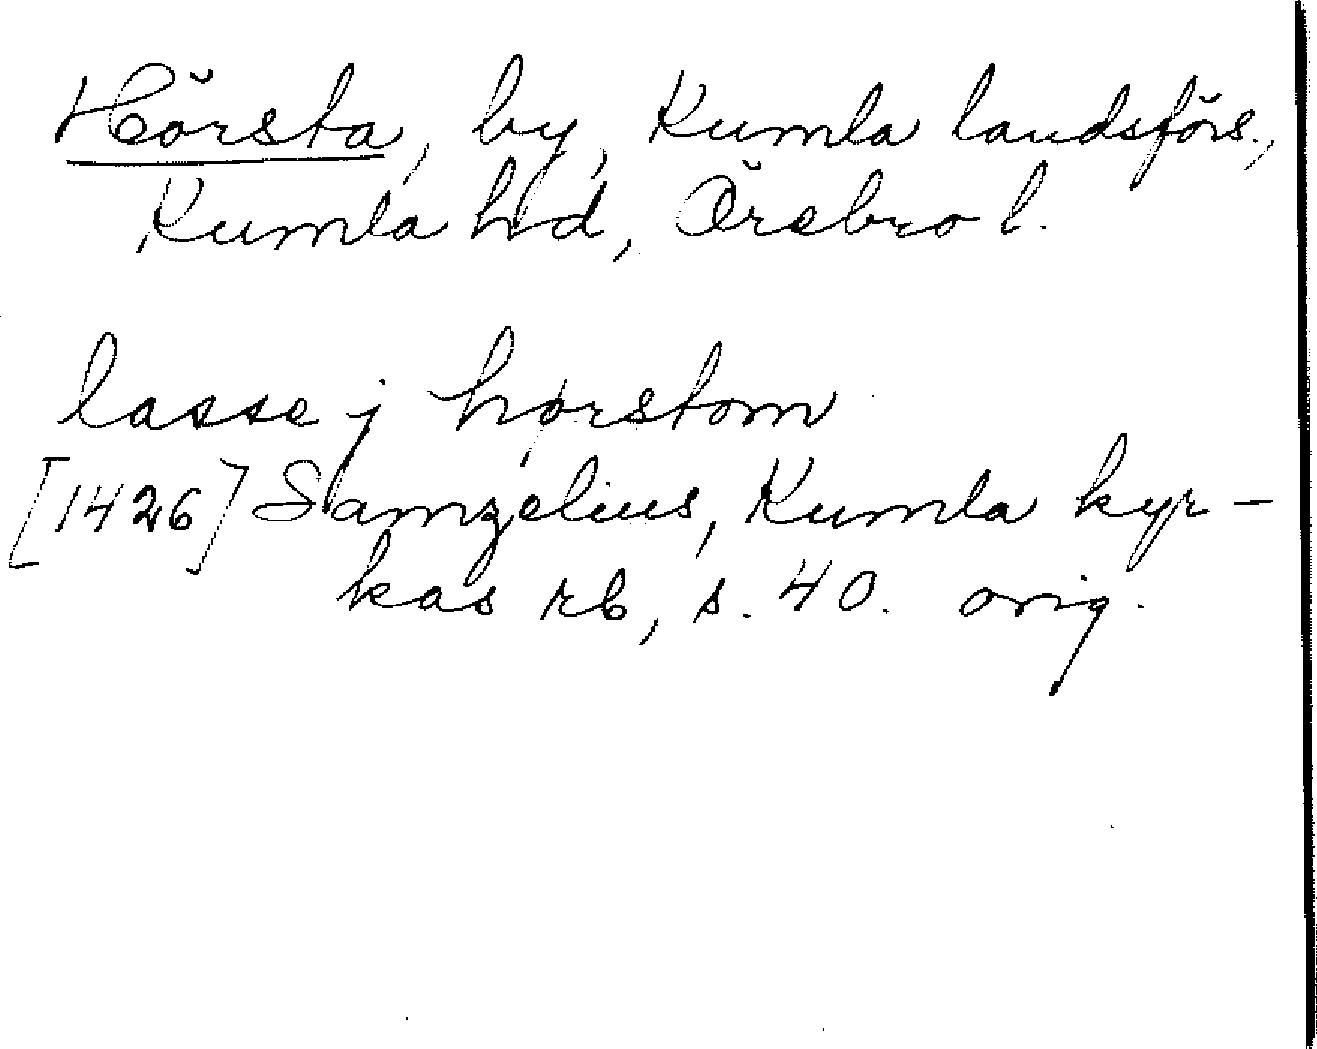 Hörsta, by, Kumla landsförs.,
Kumla hd, Örebro l.
lasse j hørstom
[1426] Samzelius, Kumla kyr-
kas rb, s. 40. orig.